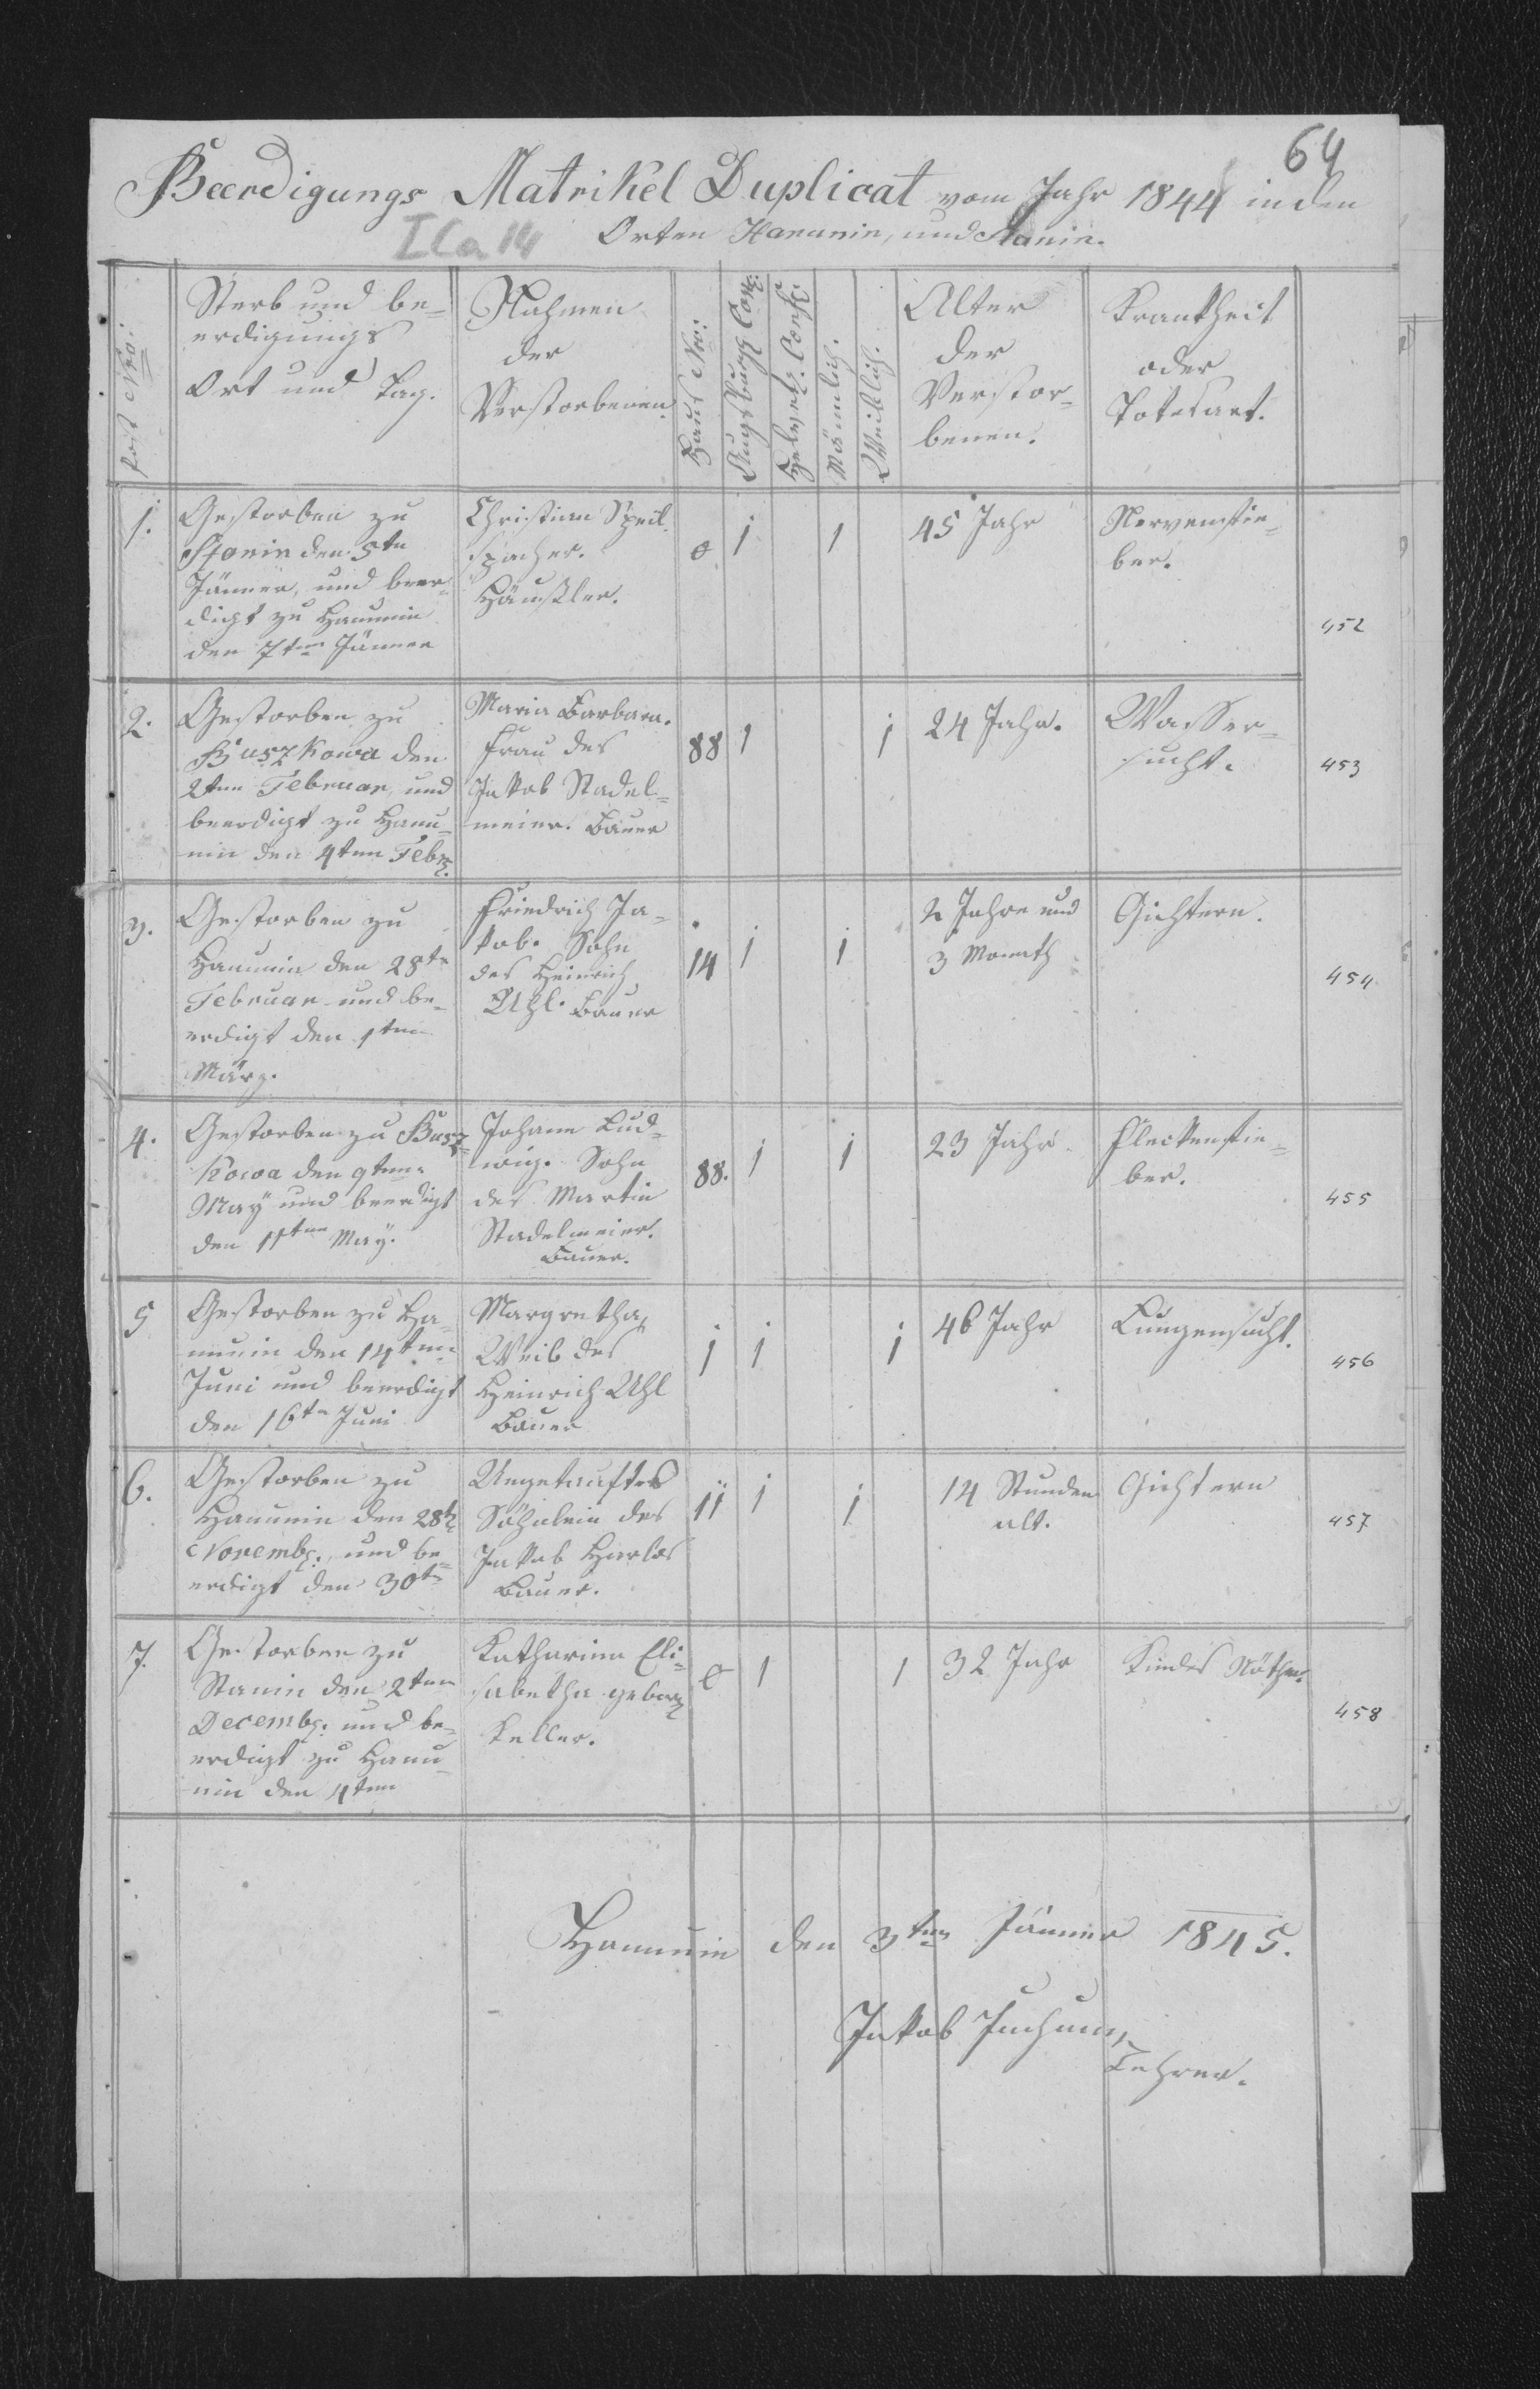 64
Beerdigungs Matrikel Duplicat vom Jahr 1844 in den
I Ca 14
Orten Hanunin, und Stanin.
Post Nro:
Sterb und be=
erdigungs
Ort und Tag.
Nahmen
der
Verstorbenen
Haus Nro:
Augsburg. Conf:
Helvet. Conf:
Männlich.
Weiblich.
Alter
der
Verstor=
benen.
Krankheit
oder
Todesart.
1.
Gestorben zu
Stanin den 5ten
Jänner, und beer=
digt zu Hanunin
den 7ten Jänner
Christian Speil
spacher.
Häußler.
0
1
1
45 Jahr
Nervenfie=
ber.
452
2.
Gestorben zu
Buszkowa den
2ten Februar, und
beerdigt zu Hanu=
nin den 4ten Febr.
Maria Barbara.
Frau des
Jakob Stadel=
meier. Bauer
88
1
1
24 Jahr.
Wasser=
sucht.
453
3.
Gestorben zu
Hanunin den 28te
Februar und be=
erdigt den 1ten
März.
Friedrich Ja=
kob. Sohn
des Heinrich
Uhl. Bauer
14
1
1
2 Jahre und
3 Monath
Gichtern.
454
4.
Gestorben zu Busz=
kowa den 9ten
May und beerdigt
den 11ten May.
Johann Lud=
wig. Sohn
des Martin
Stadelmeier.
Bauer.
88.
1
1
23 Jahr.
Fleckenfie=
ber.
455
5
Gestorben zu Ha=
nunin den 14ten
Juni und beerdigt
den 16te Juni
Margretha,
Weib des
Heinrich Uhl
Bauer
1
1
1
46 Jahr
Lungensucht.
456
6.
Gestorben zu
Hanunin den 28te
Novemb:, und be=
erdigt den 30te
Ungetauftes
Söhnlein des
Jakob Harlos
Bauer.
11
1
1
14 Stunden
alt.
Gichtern
457
7.
Gestorben zu
Stanin den 2ten
Decemb: und be=
erdigt zu Hanu=
nin den 4ten
Katharina Eli=
sabetha gebor
Keller.
0
1
1
32 Jahr
Kindes Nöthen.
458
Hanunin den 3ten Jänner 1845.
Jakob
Lehrer.